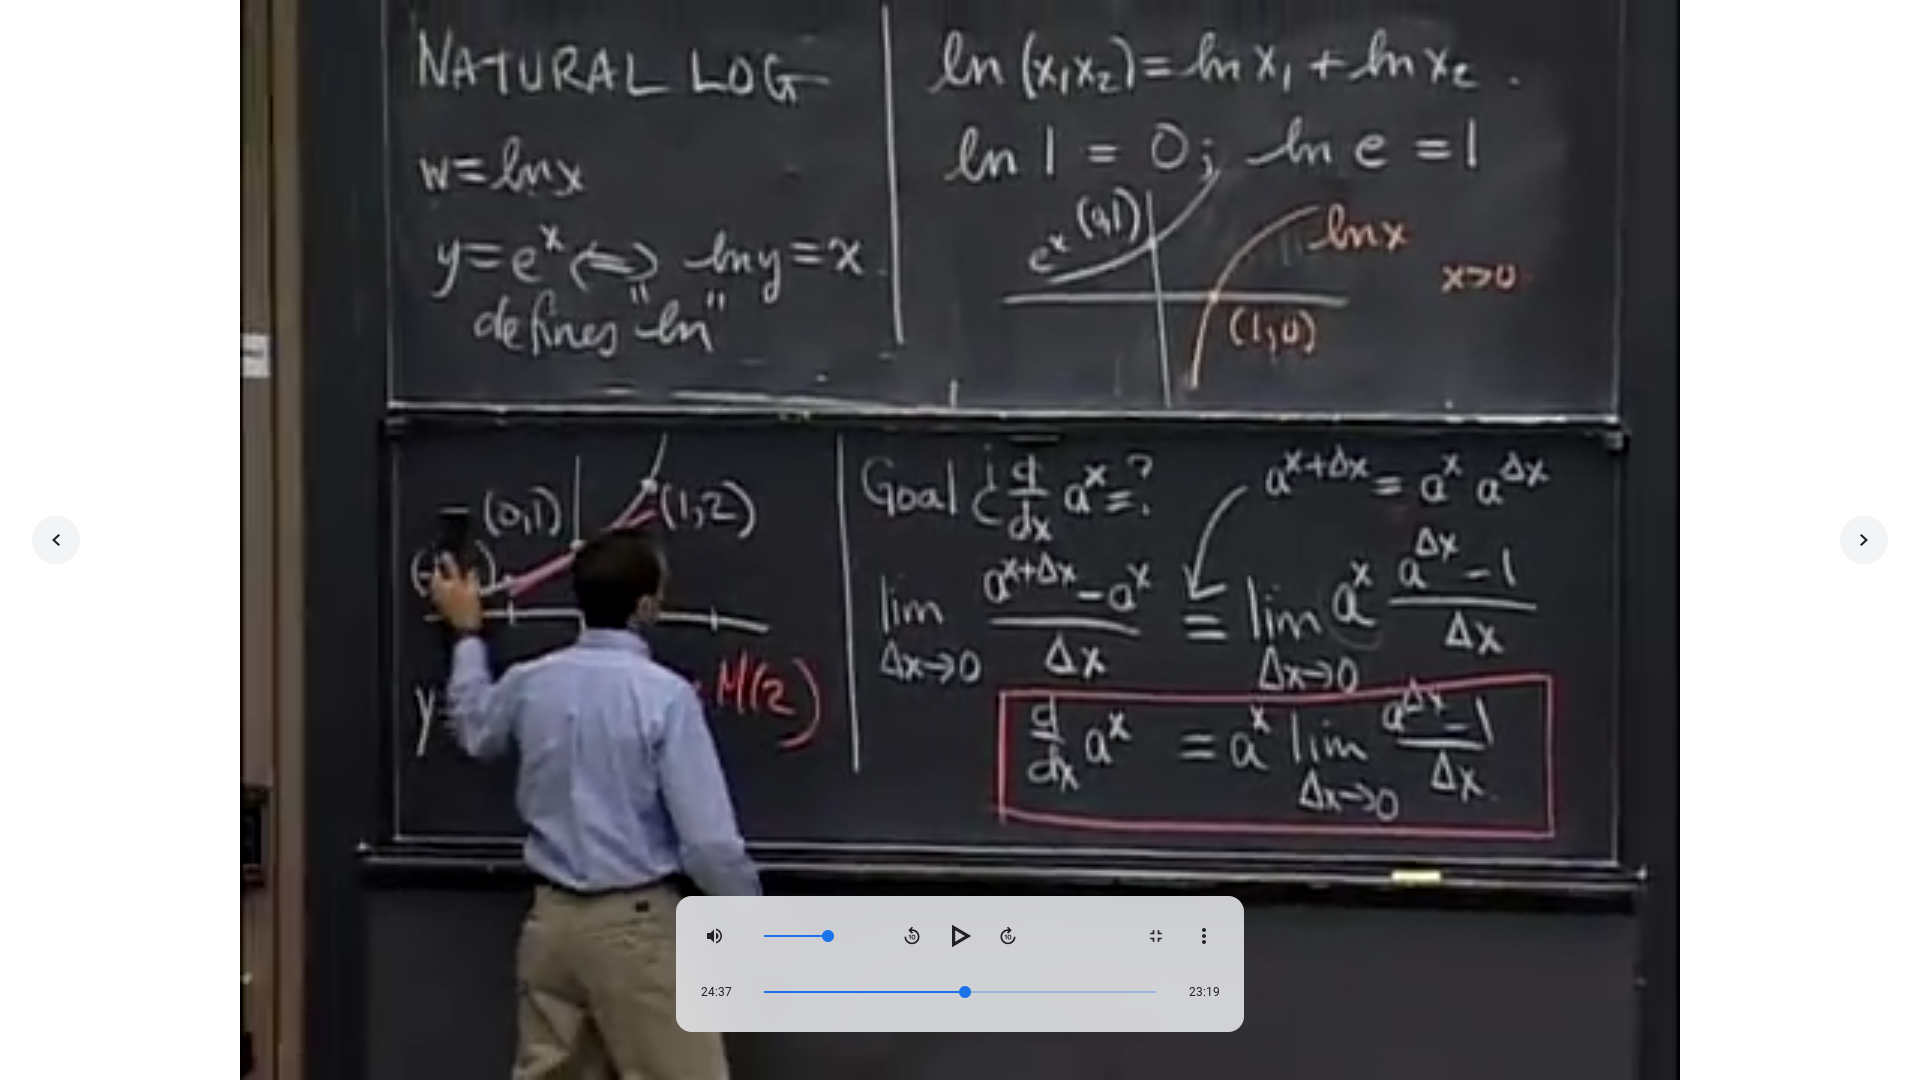 NATURAL LOG
w=lnx
y=e^x <=> lny=x
defines "ln"
ln (x₁x₂)=lnx₁+lnx₂.
ln 1 = 0; ln e =1
e^x (0,1)
lnx
x>0
(1,0)
(0,1)
(1,2)
y=
M(2)
Goal ¿ d/dx a^x=?
a^(x+Δx) = a^x a^Δx
lim Δx→0 (a^(x+Δx) - a^x)/Δx = lim Δx→0 a^x (a^Δx - 1)/Δx
d/dx a^x = a^x lim Δx→0 (a^Δx - 1)/Δx
10
10
24:37
23:19